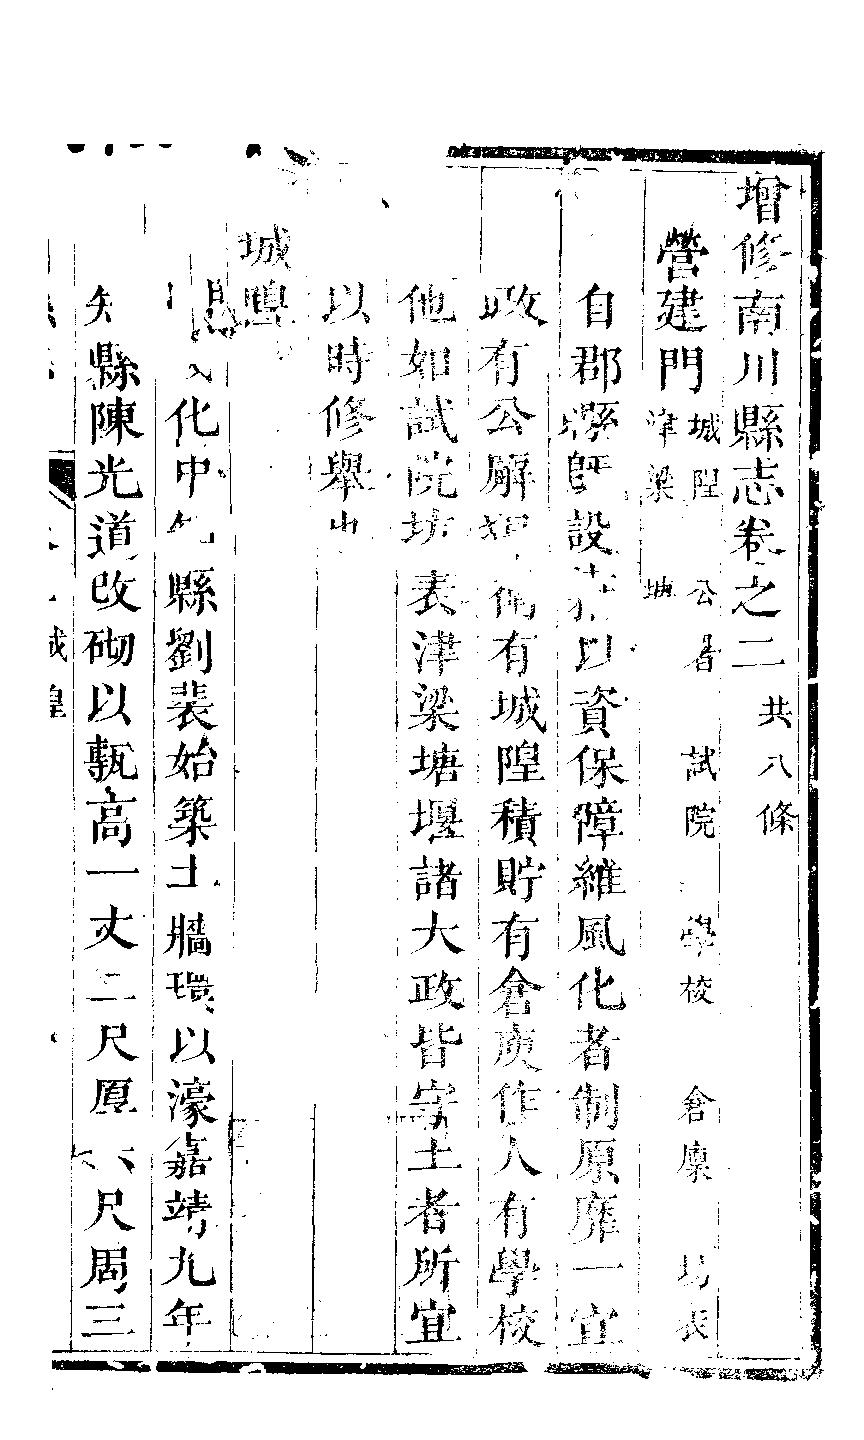 增修南川縣志卷之二 共八條
營建門 城隍 公署 試院 學校 倉廩 坊表 津梁 塘
自郡縣 設 以資保障維風化者制原靡一宜
政有公廨 有城隍積貯有倉庾作人有學校
他如試院坊表津梁塘堰諸大政皆守土者所宜
以時修舉
城隍
化中 縣劉裴始築土牆環以濠嘉靖九年
知縣陳光道改砌以甎高一丈二尺厚六尺周三
城隍